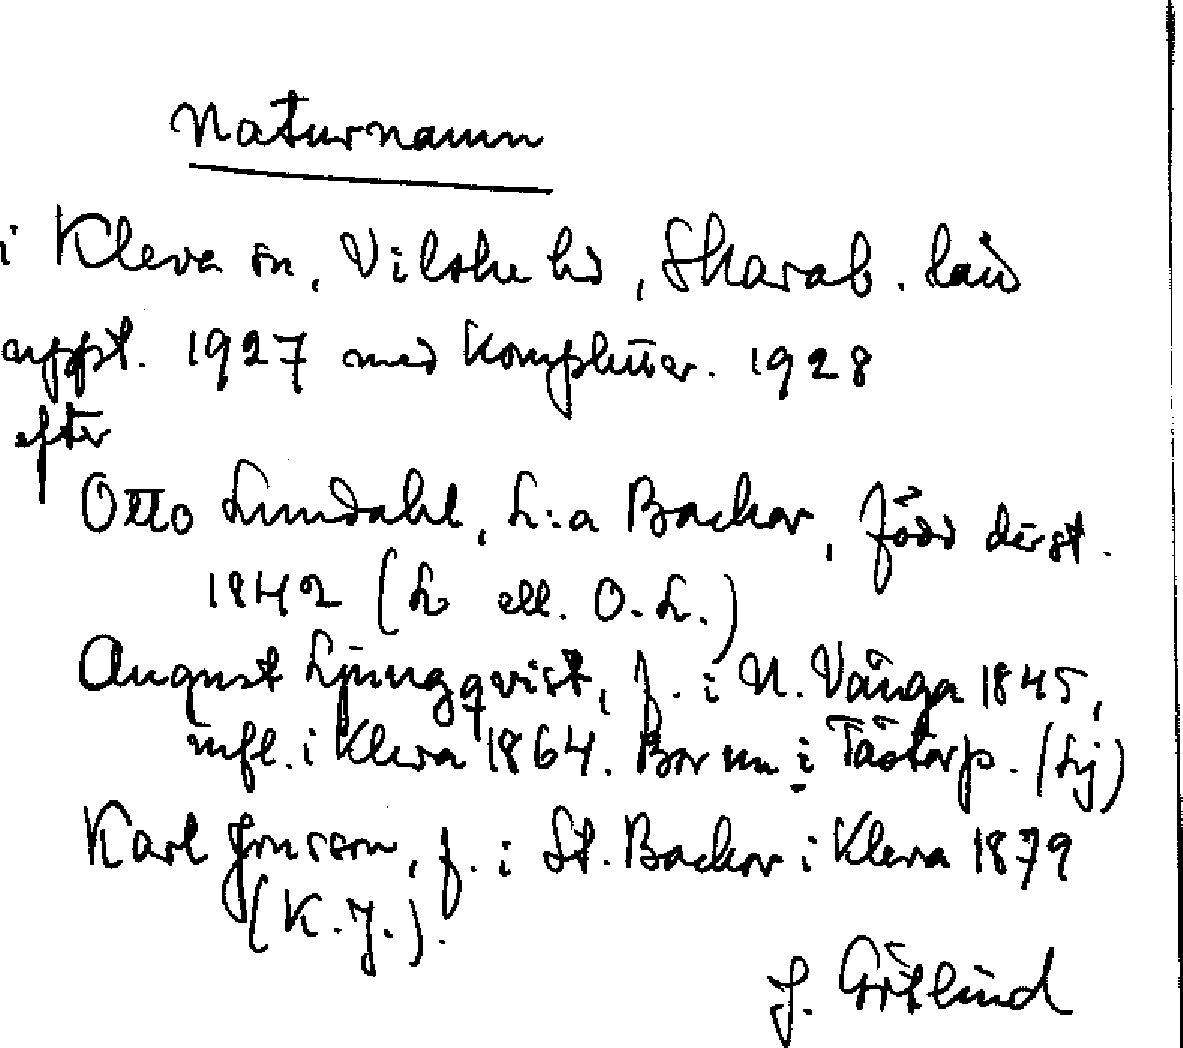 Naturnamn
i Kleva sn, Vilske hd, Skarab. län
uppt. 1927 med kompletter. 1928
efter
Otto Lundahl, L:a Backor, född därst.
1842 (L ell. O.L.)
August Ljungqvist, f. i N. Vånga 1845,
infl. i Kleva 1864. Bor nu i Tåstorp. (Lj)
Karl Jonsson, f. i St. Backor i Kleva 1879
(K.J.).
J. Götlind